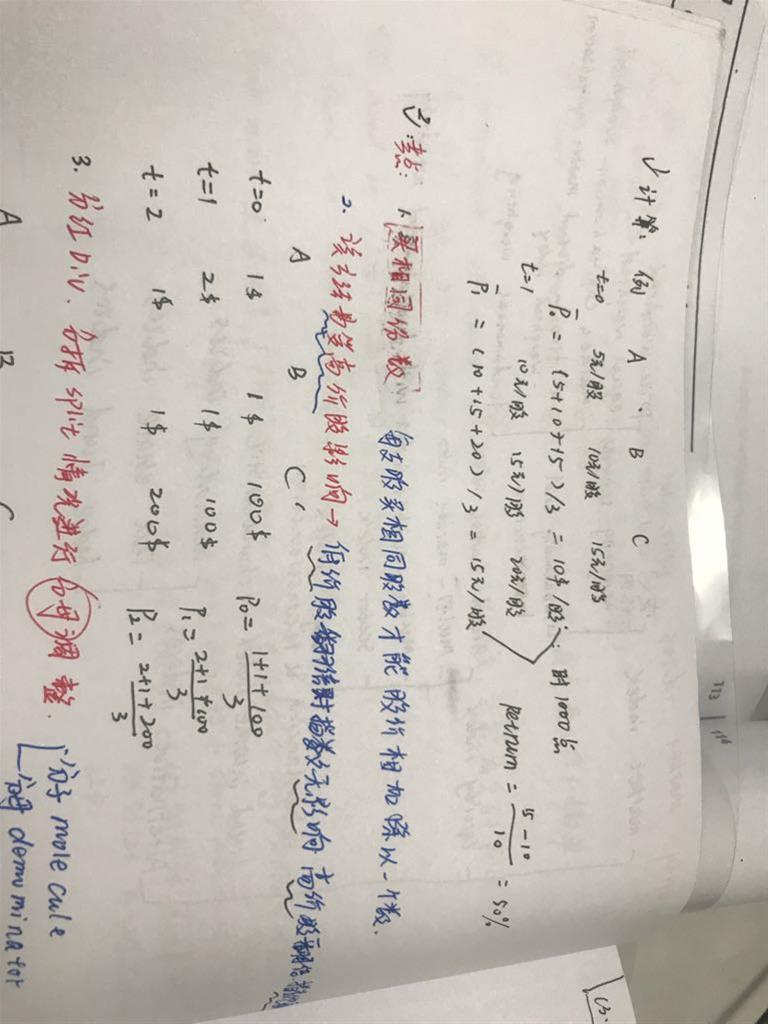 √ 计算: 例 A B C
t=0 5元/股 10元/股 15元/股
P₀ = (5+10+15)/3 = 10$/股; 时1000点
t=1 10元/股 15元/股 20元/股
Return = 15-10/10 = 50%
P₁ = (10+15+20)/3 = 15元/股
考点: 1. 买相同份数 每支股买相同股数才能股价相加除以一个数.
2. 该方法易受高价股影响→低价股翻倍时指数无影响 高价股翻倍
A B C
t=0 1$ 1$ 100$ P₀= 1+1+100/3
t=1 2$ 1$ 100$ P₁= 2+1+100/3
t=2 1$ 1$ 200$ P₂= 2+1+200/3
3. 分红 Div. 分拆 split 情况进行分母调整.
分子 molecule
分母 domuminator
A B C